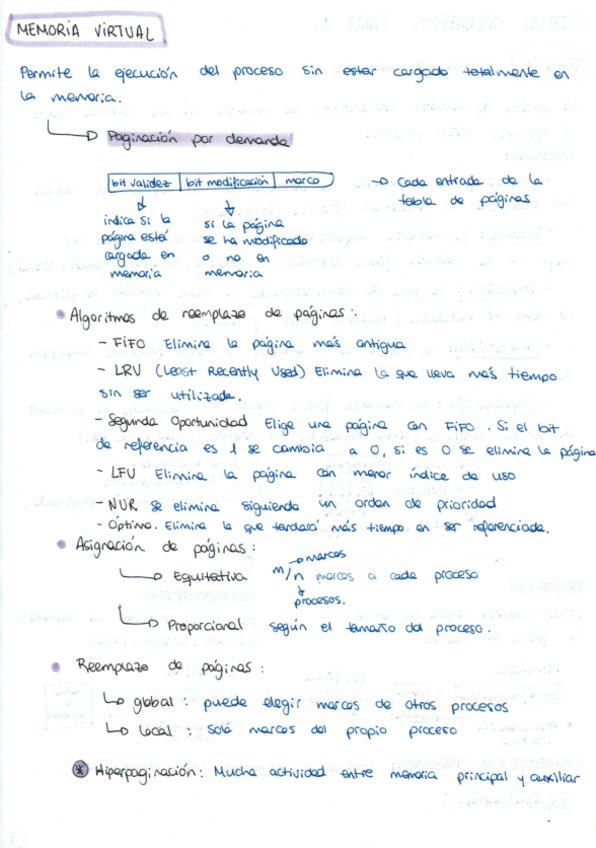 MEMORIA VIRTUAL
Permite la ejecución del proceso sin estar cargado totalmente en
la memoria.
Paginación por demanda
bit validez | bit modificación | marco
Cada entrada de la
tabla de páginas
indica si la
página está
cargada en
memoria
si la página
se ha modificado
o no en
memoria
Algoritmos de reemplazo de páginas:
- FiFO Elimina la página más antigua
- LRU (Least Recently Used) Elimina la que lleva más tiempo
sin ser utilizada.
- Segunda Oportunidad Elige una página con FiFO. Si el bit
de referencia es 1 se cambia a 0, si es 0 se elimina la página
- LFU Elimina la página con menor índice de uso
- NUR se elimina siguiendo un orden de prioridad
- Óptimo. Elimina la que tardará más tiempo en ser referenciada.
Asignación de páginas:
marcos
Equitativa m/n marcos a cada proceso
procesos.
Proporcional según el tamaño del proceso.
Reemplazo de páginas:
global: puede elegir marcos de otros procesos
local: solo marcos del propio proceso
* Hiperpaginación: Mucha actividad entre memoria principal y auxiliar